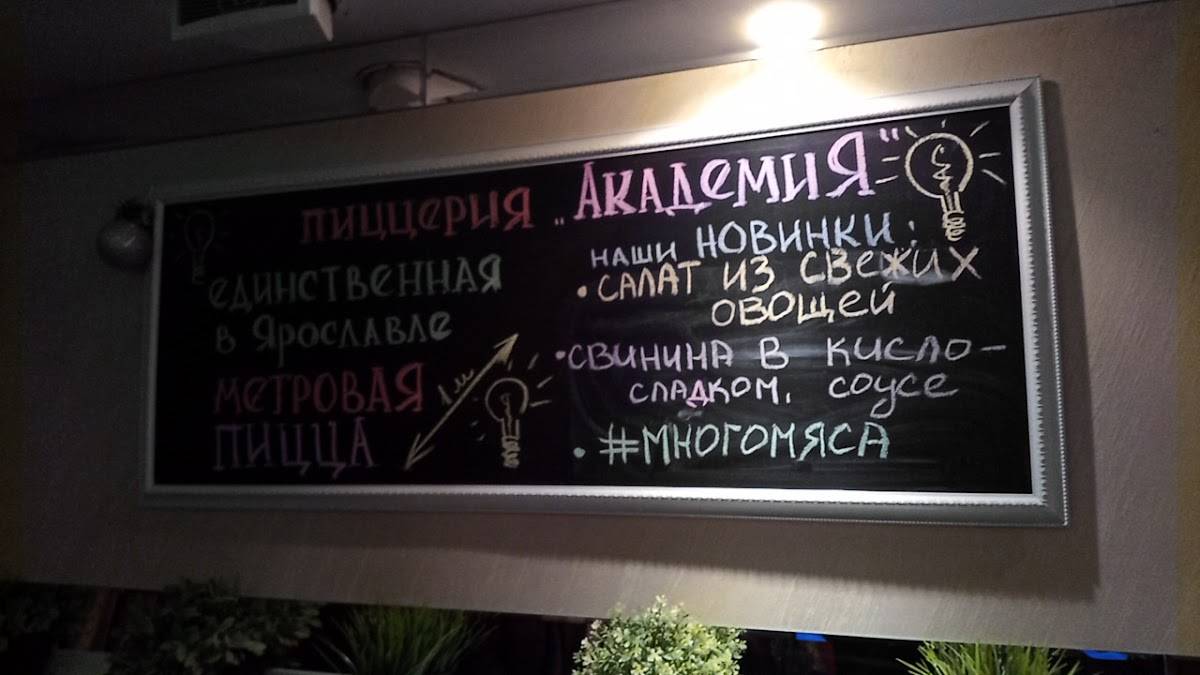 ПИЦЦЕРИЯ „АКАДЕМИЯ"
ЕДИНСТВЕННАЯ
В ЯРОСЛАВЛЕ
МЕТРОВАЯ
ПИЦЦА
1м
НАШИ НОВИНКИ:
• САЛАТ ИЗ СВЕЖИХ
ОВОЩЕЙ
• СВИНИНА В КИСЛО-
СЛАДКОМ. СОУСЕ
• #МНОГОМЯСА